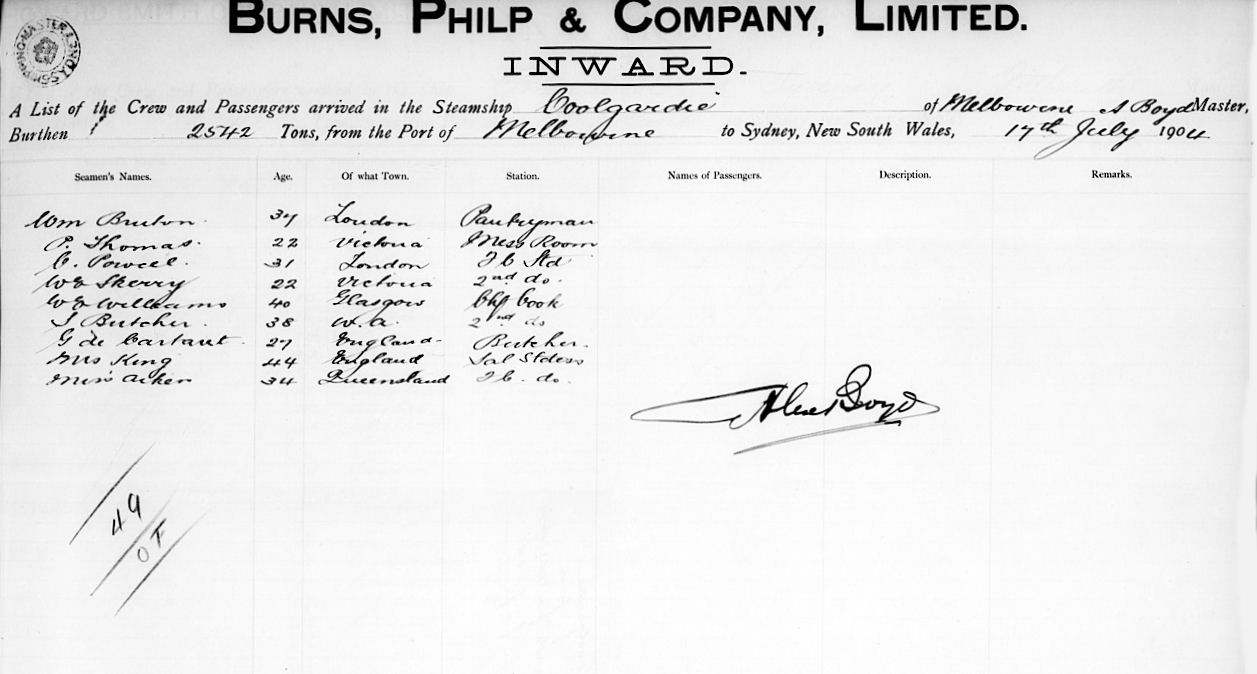 BURNS, PHILP & COMPANY, LIMITED.
INWARD.
A List of the Crew and Passengers arrived in the Steamship Coolgardie of Melbourne A Boyd Master,
Burthen 2542 Tons, from the Port of Melbourne to Sydney, New South Wales, 17th July 1904
Seamen's Names. Age. Of what Town. Station. Names of Passengers. Description. Remarks.
Wm Bruton. 37 London Pantryman
P. Thomas. 22 Victoria Mess Room
C. Powell. 31 London F C Std
W E Skerry 22 Victoria 2nd do.
W E Williams 40 Glasgow Chf Cook
J Butcher. 38 W.A. 2nd do
G de Cartaret 27 England Butcher.
Mrs King 44 England Sal Stdess
Miss Aiken 34 Queensland F C. do.
Alex Boyd
49